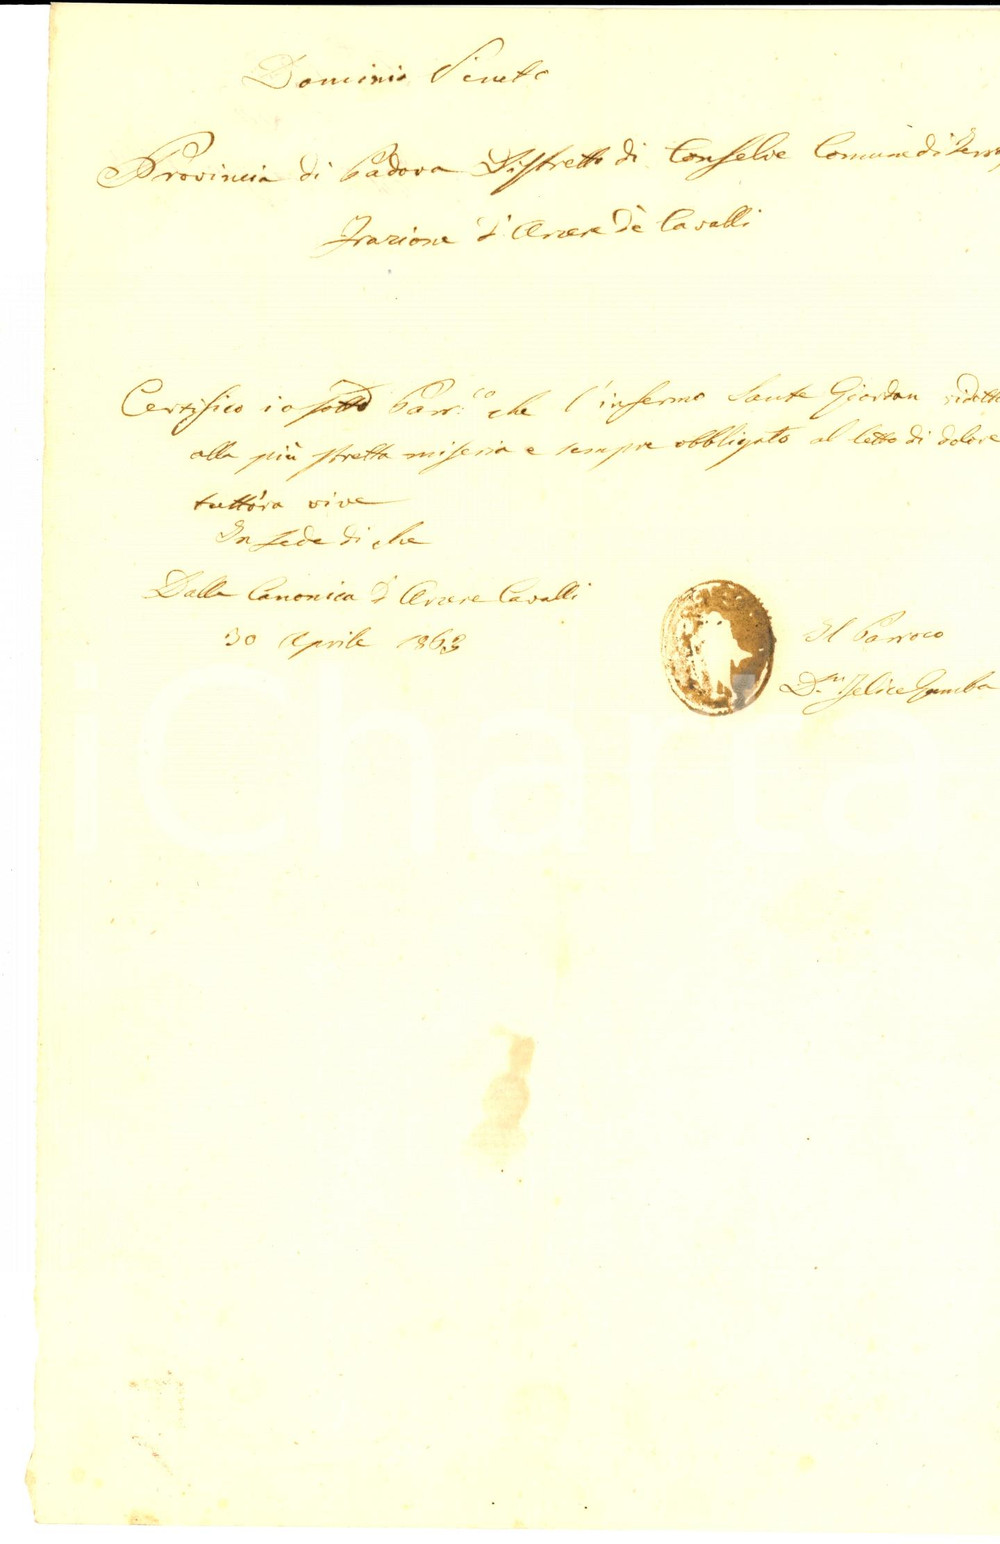 Dominio Veneto
Provincia di Padova Distretto di Conselve Comune di
Frazione d'Arzere de Cavalli
Certifico io sotto Parr.co che l'infermo Sante Giordan ridotto
alla più stretta miseria e sempre obbligato al letto di dolore
tutt'ora vive
In fede di che
Dalla Canonica d'Arzere Cavalli
30 Aprile 1863
Il Parroco
D.n Felice Gamba
iCharta